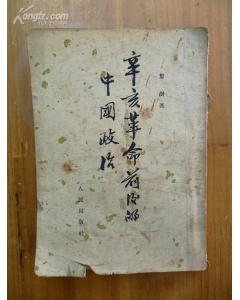 Kongfz.com
黎澍 著
辛亥革命前後的
中國政治
人民出版社